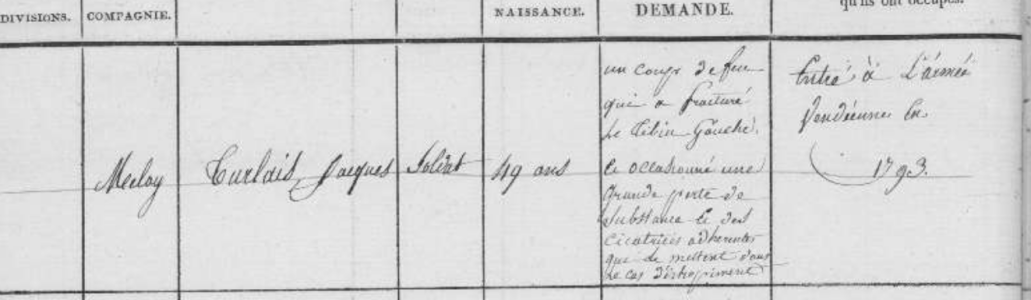 DIVISIONS.
COMPAGNIE.
NAISSANCE.
DEMANDE.
qu'ils ont occupés.
Meslay
Turlais, Jacques
Soldat
49 ans
un coup de feu
qui a fracturé
le tibia Gauche,
a occasionné une
grande perte de
substance et des
cicatrices adherentes
que le mettent dans
le cas d'être
Entré à L'armée
Vendéenne En
1793.